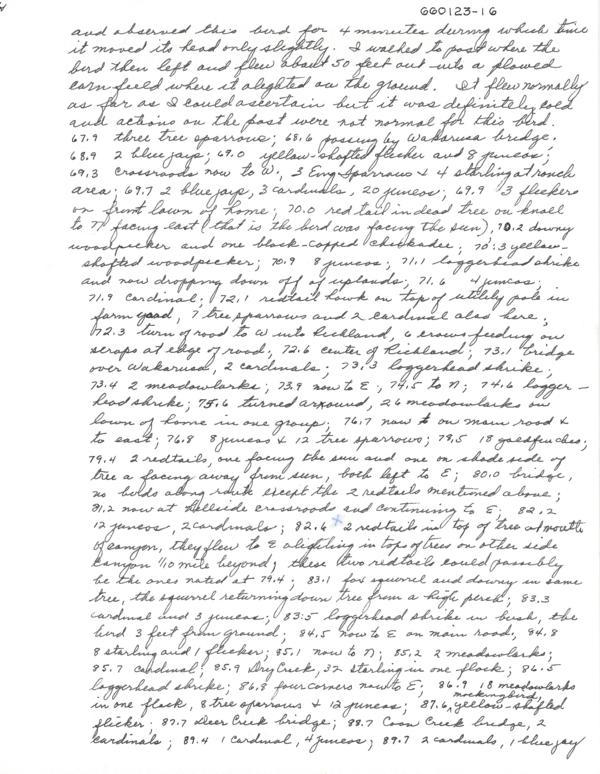 660123-16
and observed this bird for 4 minutes during which time
it moved its head only slightly. I walked to post where the
bird then left and flew about 50 feet out into a plowed
corn field where it alighted on the ground. It flew normally
as far as I could ascertain but it was definitely cold
and actions on the post were not normal for this bird.
67.9 three tree sparrows; 68.6 passing by Wakarusa bridge.
68.9 2 bluejays; 69.0 yellow-shafted flicker and 8 juncos;
69.3 crossroads now to W., 3 Eng Sparrows & 4 starling at ranch
area; 69.7 2 bluejays, 3 cardinals, 20 juncos; 69.9 3 flickers
on front lawn of home; 70.0 red tail in dead tree on knoll
to N facing east (that is the bird was facing the sun), 70.2 downy
woodpecker and one black-capped chickadee; 70.3 yellow-
shafted woodpecker; 70.9 8 juncos; 71.1 loggerhead shrike
and now dropping down off of uplands; 71.6 4 juncos;
71.9 cardinal; 72.1 redtail hawk on top of utility pole in
farm yard, 7 tree sparrows and 2 cardinal also here;
72.3 turn of road to W into Richland, 6 crows feeding on
scraps at edge of road; 72.6 center of Richland; 73.1 bridge
over Wakarusa, 2 cardinals; 73.3 loggerhead shrike;
73.4 2 meadowlarks; 73.9 now to E; 74.5 to N; 74.6 logger-
head shrike; 75.6 turned around, 26 meadowlarks on
lawn of home in one group; 76.7 now to on main road &
to east; 76.8 8 juncos & 12 tree sparrows; 78.5 18 goldfinches;
79.4 2 redtails, one facing the sun and one on shade side of
tree a facing away from sun, both left to E; 80.0 bridge,
no birds along route except the 2 redtails mentioned above;
81.2 now at crossroads and continuing to E; 82.2
12 juncos, 2 cardinals; 82.6 x 2 redtails in top of tree at mouth
of canyon, they flew to E alighting in tops of trees on other side
canyon 1/10 mile beyond; these two redtails could possibly
be the ones noted at 79.4; 83.1 fox squirrel and downy in same
tree, the squirrel returning down tree from a high perch; 83.3
cardinal and 3 juncos; 83.5 loggerhead shrike in bush, the
bird 3 feet from ground; 84.5 now to E on main road, 84.8
8 starling and 1 flicker; 85.1 now to N; 85.2 2 meadowlarks;
85.7 cardinal; 85.9 Dry Creek, 32 starling in one flock; 86.5
loggerhead shrike; 86.8 four corners now to E; 86.9 18 meadowlarks
in one flock, 8 tree sparrows & 12 juncos; 87.6 mockingbird, yellow-shafted
flicker; 87.7 Deer Creek bridge; 88.7 Coon Creek bridge, 2
cardinals; 89.4 1 cardinal, 4 juncos; 89.7 2 cardinals, 1 bluejay